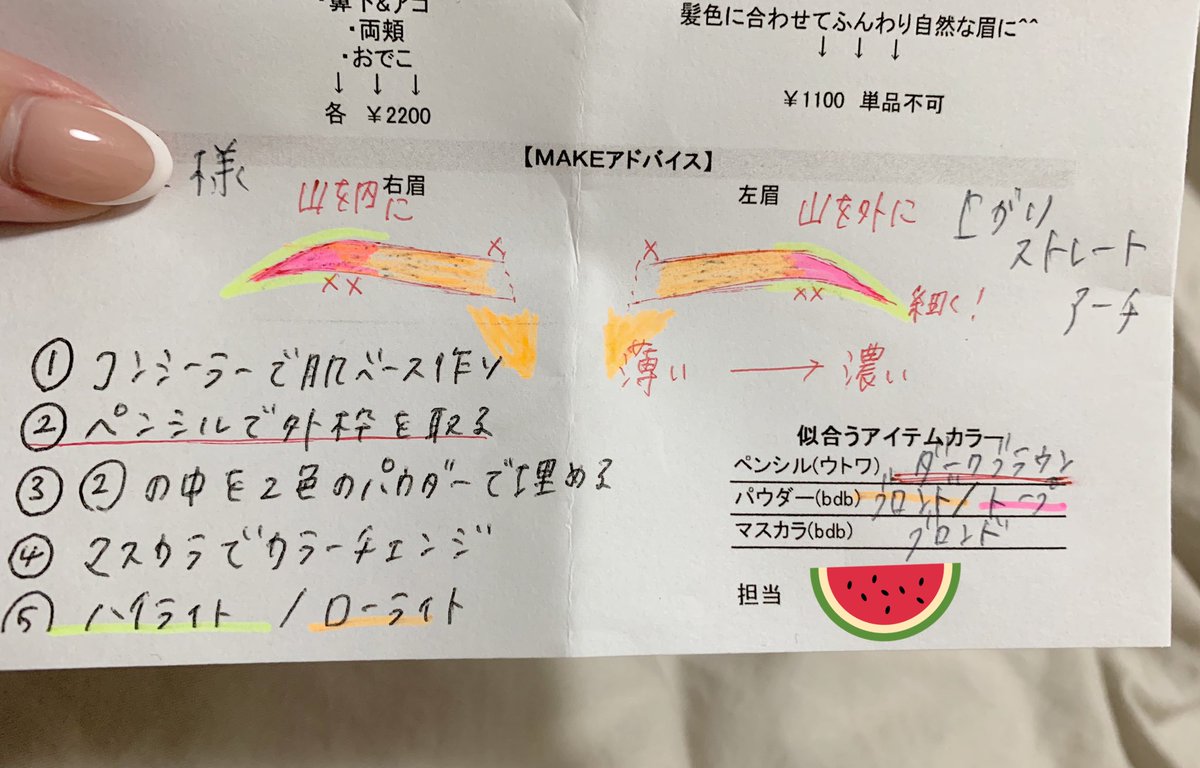 ・鼻下&アゴ
・両頬
・おでこ
↓ ↓ ↓
各 ￥2200
髪色に合わせてふんわり自然な眉に^^
↓ ↓ ↓
￥1100 単品不可
【MAKEアドバイス】
様
右眉
山を内に
左眉
山を外に
上がり
ストレート
アーチ
×
××
×
××
細く!
薄い → 濃い
① コンシーラーで肌ベース作り
② ペンシルで外枠を取る
③ ②の中を2色のパウダーで埋める
④ マスカラでカラーチェンジ
⑤ ハイライト / ローライト
似合うアイテムカラー
ペンシル(ウトワ) ダークブラウン
パウダー(bdb) ブロンド/トープ
マスカラ(bdb) ブロンド
担当